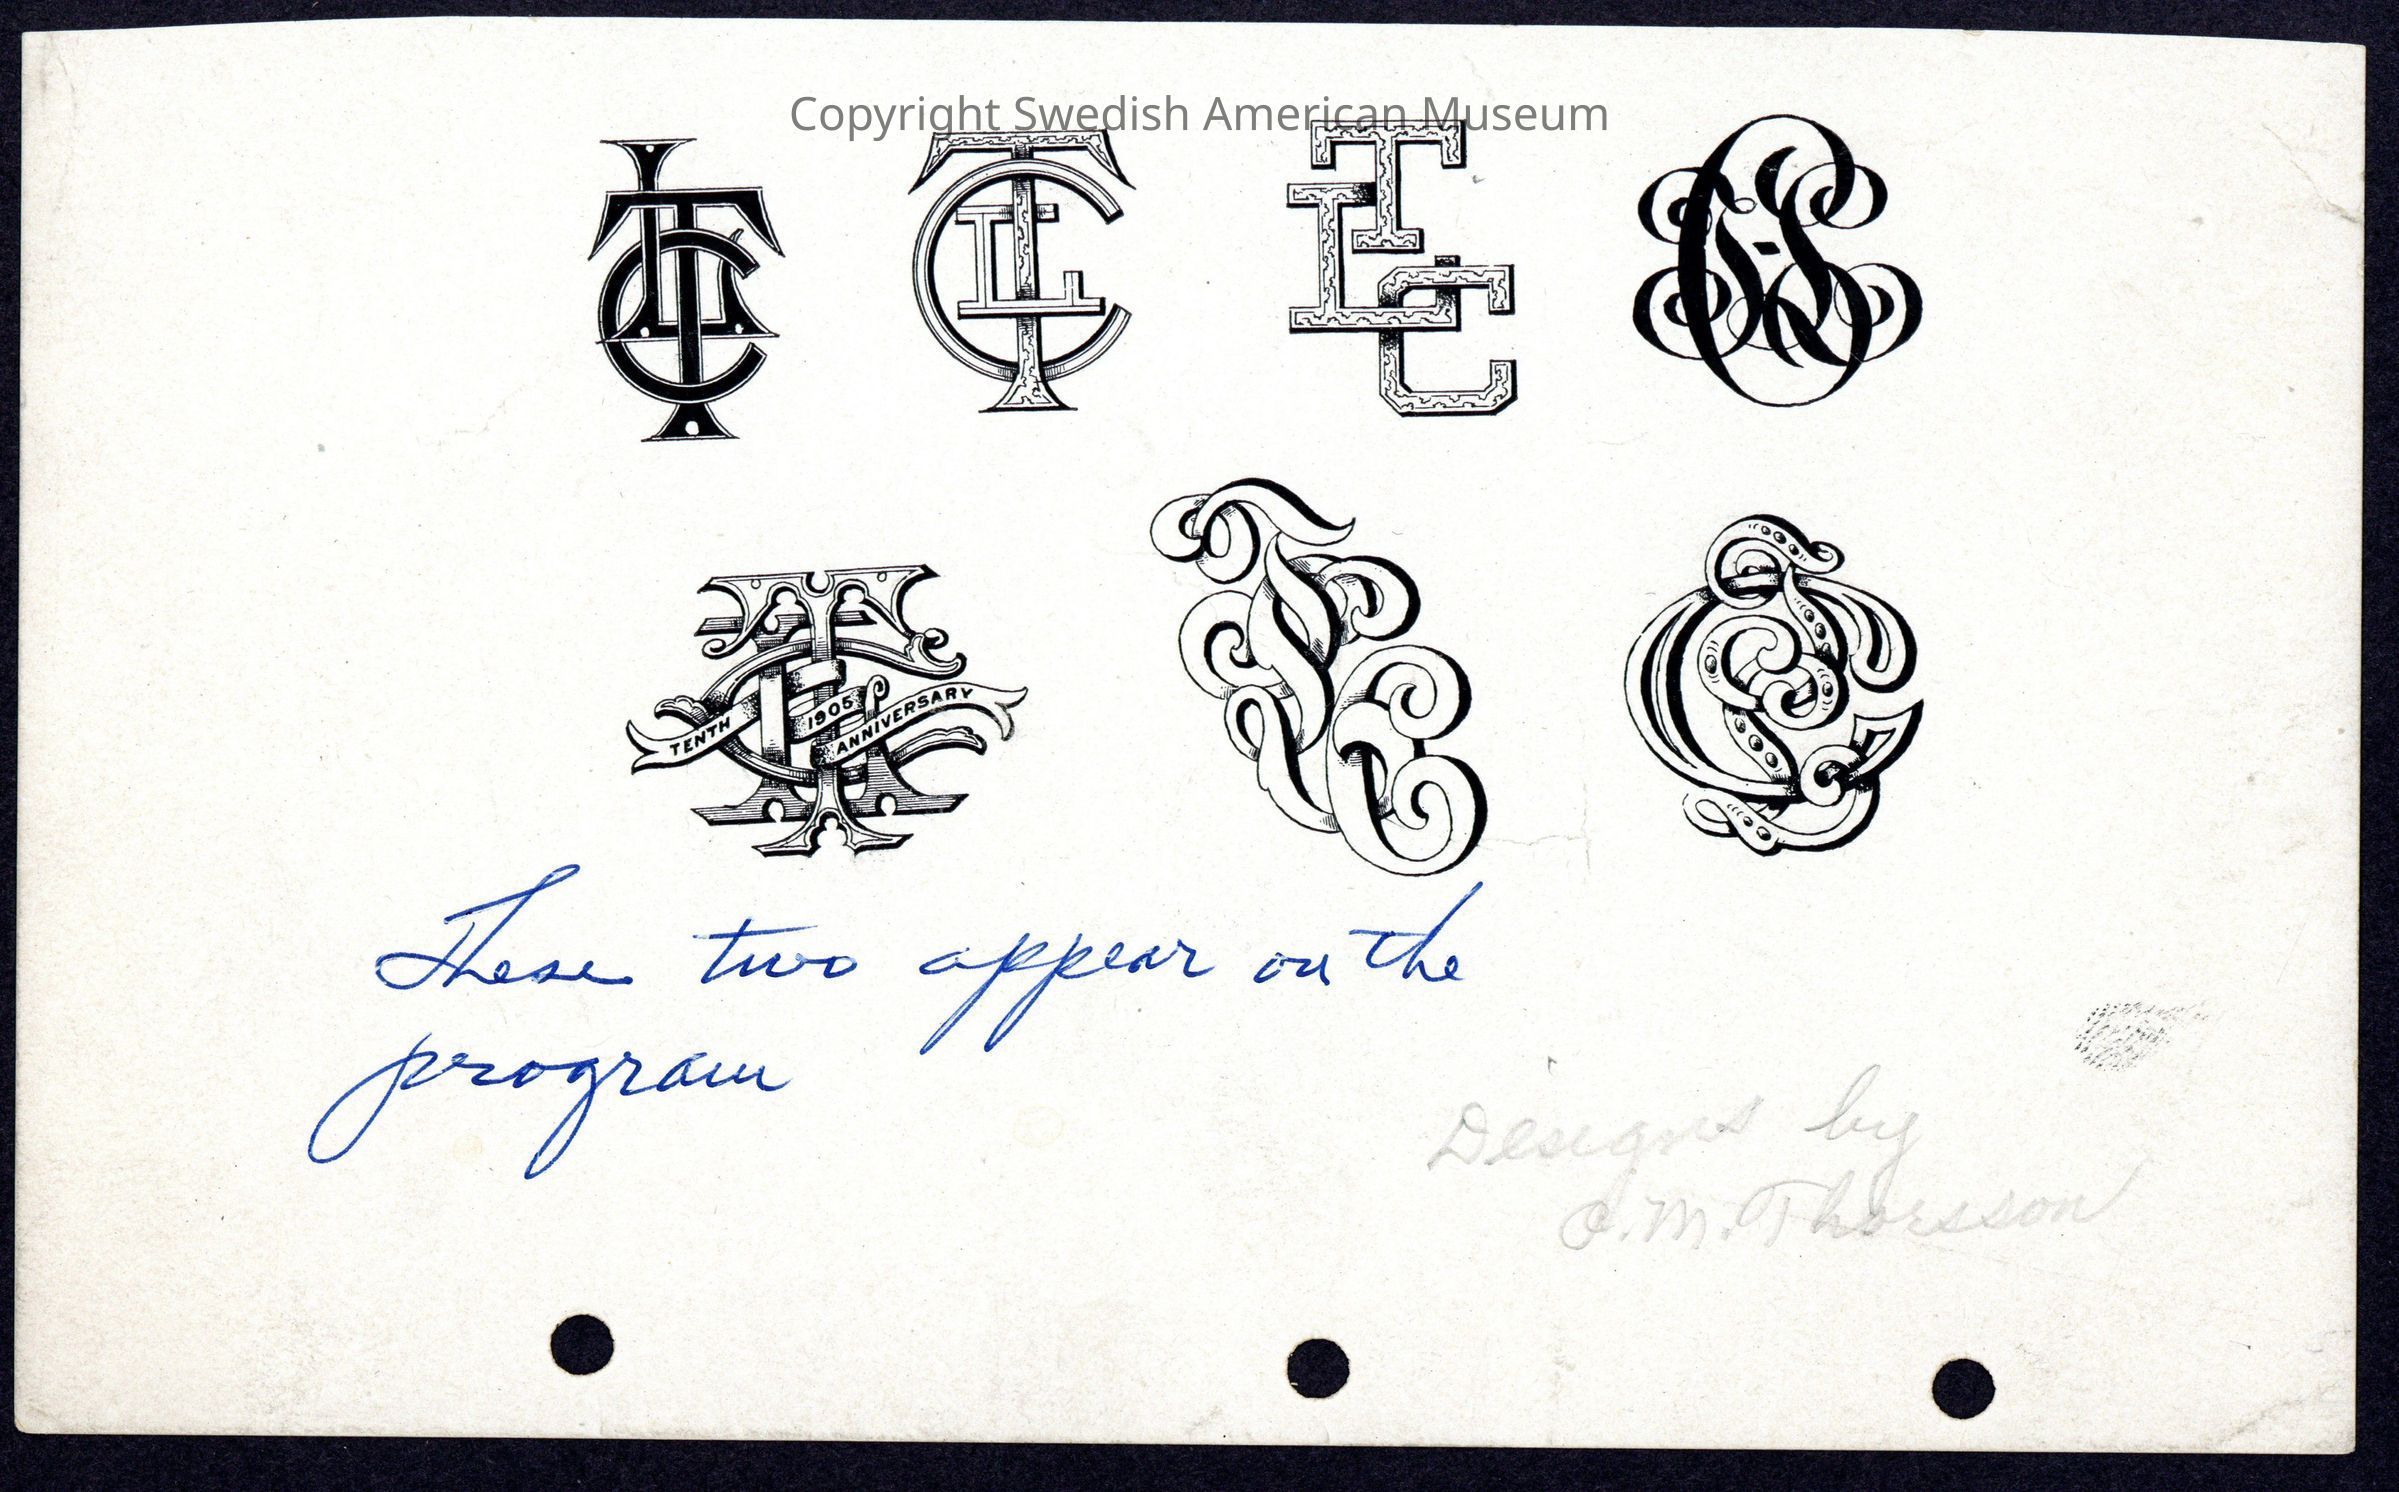 Copyright Swedish American Museum
TENTH 1905 ANNIVERSARY
These two appear on the
program
Designs by
C.M. Thorsson